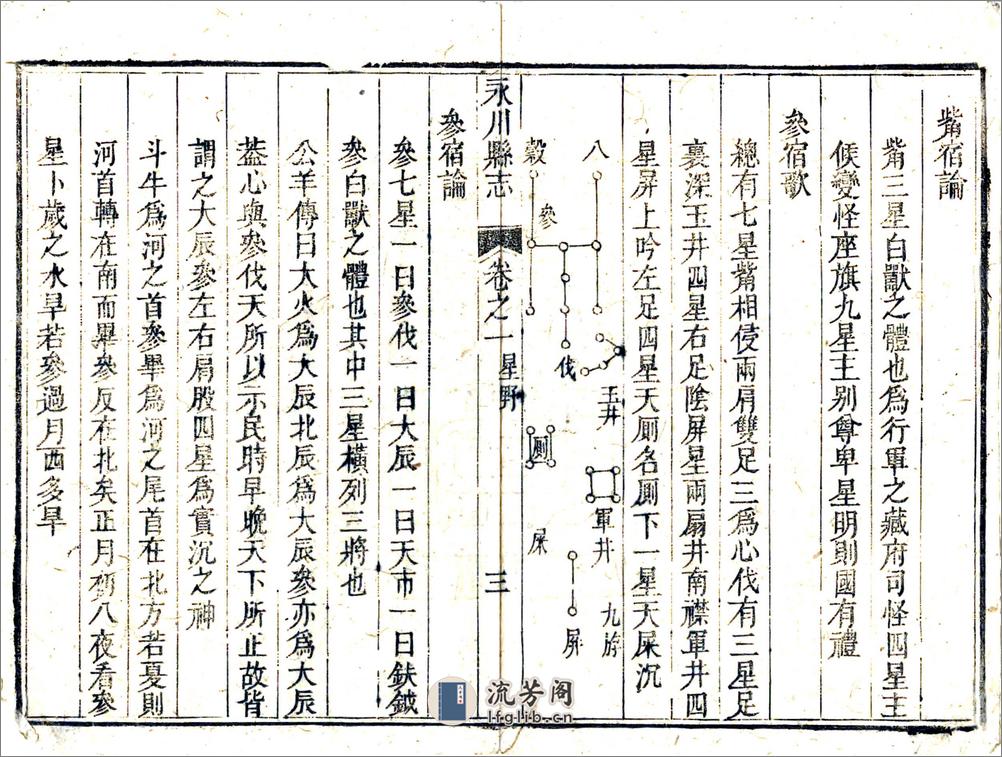 觜宿論
觜三星白獸之體也為行軍之藏府司怪四星主
候變怪座旗九星主別尊卑星明則國有禮
參宿歌
總有七星觜相侵兩肩雙足三為心伐有三星足
裏深玉井四星右足陰屏星兩扇井南襟軍井四
星屏上吟左足四星天厠名厠下一星天屎沉
八
穀
參
伐
玉井
厠
軍井
屎
九斿
屏
永川縣志
卷之一
星野
三
參宿論
參七星一曰參伐一曰大辰一曰天市一曰鈇鉞
參白獸之體也其中三星橫列三將也
公羊傳曰大火為大辰北辰為大辰參亦為大辰
葢心與參伐天所以示民時早晚天下所止故皆
謂之大辰參左右肩股四星為實沉之神
斗牛為河之首參畢為河之尾首在北方若夏則
河首轉在南而畢參反在北矣正月初八夜看參
星卜歲之水旱若參過月西多旱
流芳阁
lfglib.cn